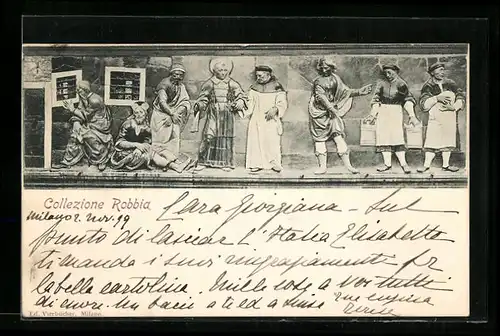 Collezione Robbia
Milano 2. Nov. 99
Cara Giorgiana - Sul
punto di lasciar l'Italia Elisabetta
ti manda i suoi ringraziamenti per
la bella cartolina. Mille cose a voi tutti
di more. Un bacio a te ed a
tua cugina
Ed. Vuerbücher, Milano.